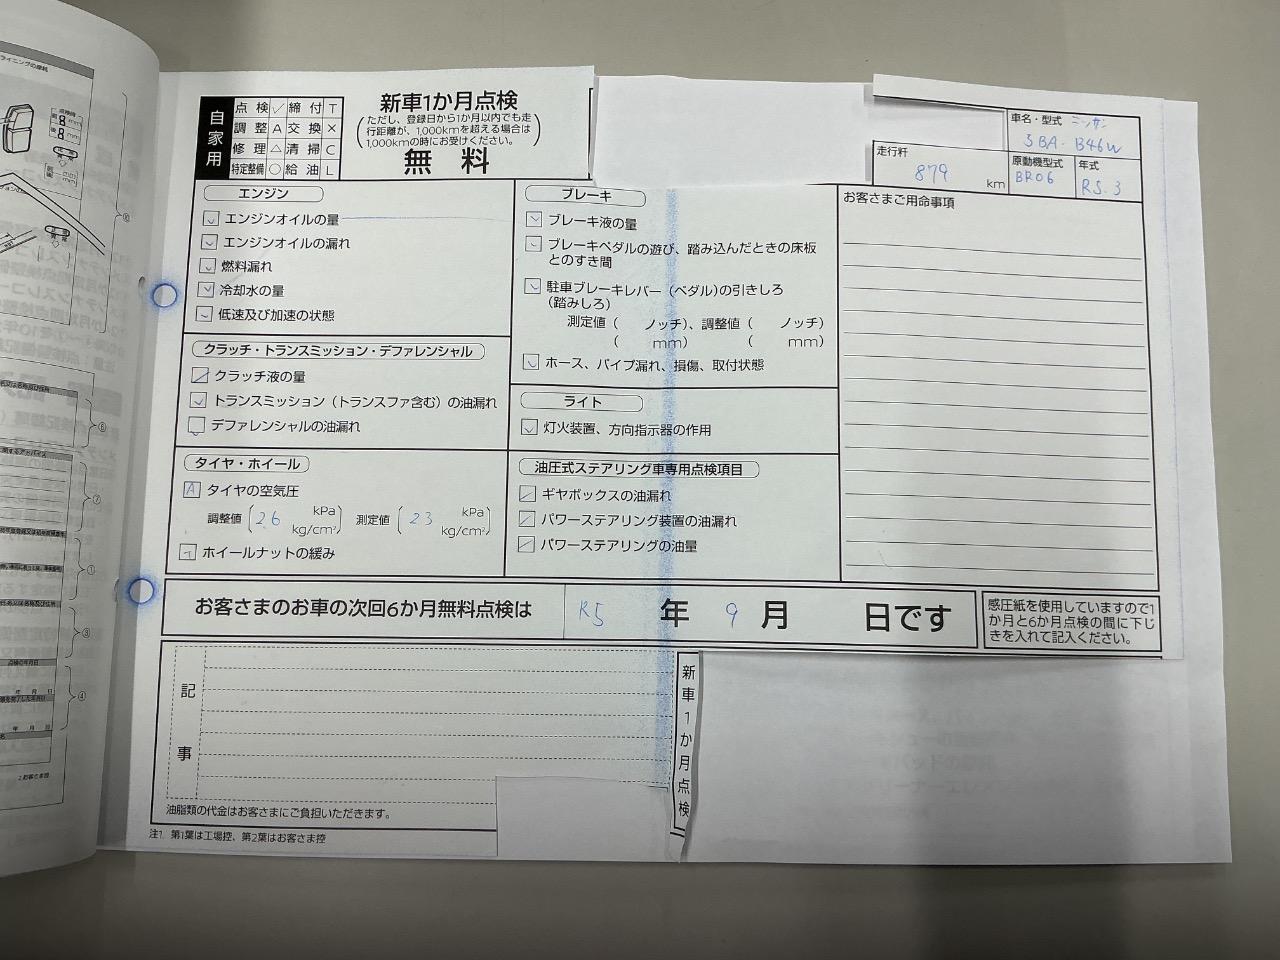 自家用
点検 ✓ 締付 T
調整 A 交換 ×
修理 △ 清掃 C
特定整備 ○ 給油 L
新車1か月点検
(ただし、登録日から1か月以内でも走
行距離が、1,000kmを超える場合は
1,000kmの時にお受けください。)
無料
車名・型式 ニッサン
5BA-B46W
走行粁
879 km
原動機型式
BR06
年式
R5.3
エンジン
エンジンオイルの量
エンジンオイルの漏れ
燃料漏れ
冷却水の量
低速及び加速の状態
クラッチ・トランスミッション・デファレンシャル
クラッチ液の量
トランスミッション(トランスファ含む)の油漏れ
デファレンシャルの油漏れ
タイヤ・ホイール
A タイヤの空気圧
調整値 (2.6 kPa kg/cm²) 測定値 (23 kPa kg/cm²)
T ホイールナットの緩み
ブレーキ
ブレーキ液の量
ブレーキペダルの遊び、踏み込んだときの床板
とのすき間
駐車ブレーキレバー(ペダル)の引きしろ
(踏みしろ)
測定値( ノッチ)、調整値( ノッチ)
( mm) ( mm)
ホース、パイプ漏れ、損傷、取付状態
ライト
灯火装置、方向指示器の作用
油圧式ステアリング車専用点検項目
ギヤボックスの油漏れ
パワーステアリング装置の油漏れ
パワーステアリングの油量
お客さまご用命事項
お客さまのお車の次回6か月無料点検は R5 年 9 月 日です
感圧紙を使用していますので1
か月と6か月点検の間に下じ
きを入れて記入ください。
記事
新車1か月点検
油脂類の代金はお客さまにご負担いただきます。
注1. 第1葉は工場控、第2葉はお客さま控